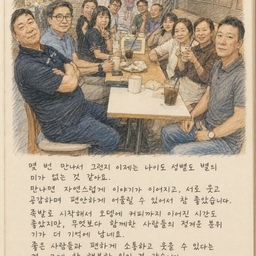 몇 번 만나서 그런지 이제는 나이도 성별도 별의
미가 없는 것 같아요.
만나면 자연스럽게 이야기가 이어지고, 서로 웃고
공감하며 편안하게 어울릴 수 있어서 참 좋았습니다.
족발로 시작해서 오뎅에 커피까지 이어진 시간도
좋았지만, 무엇보다 함께한 사람들의 정겨운 분위
기가 더 기억에 남네요.
좋은 사람들과 편하게 소통하고 웃을 수 있다는